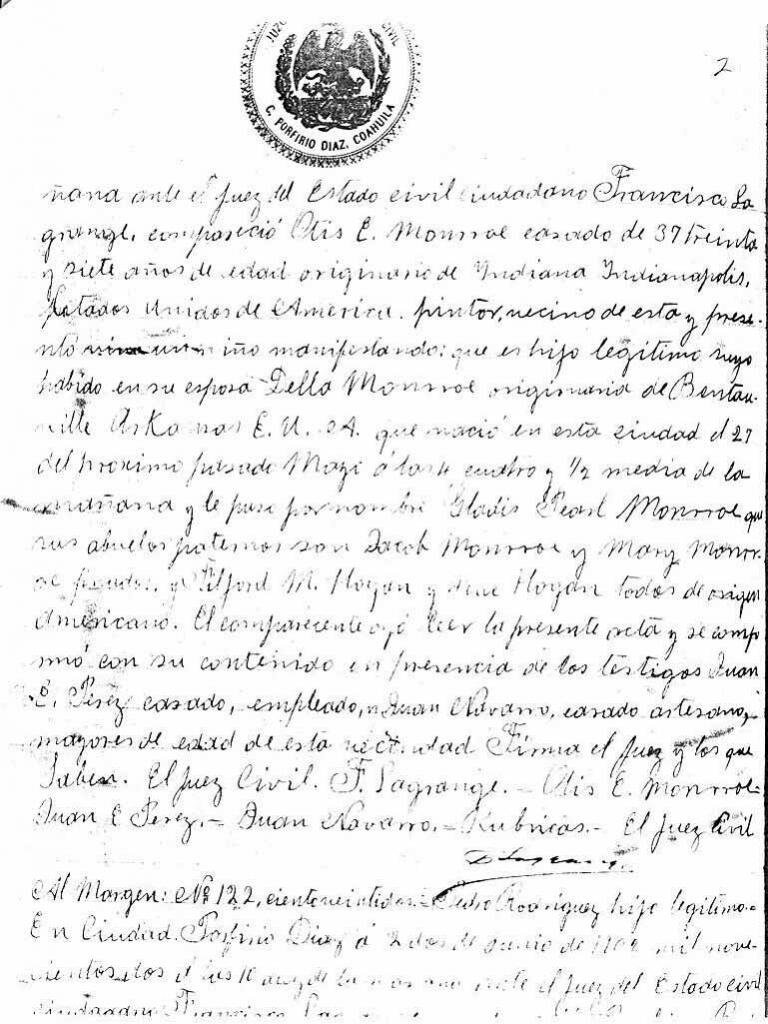 JUZG CIVIL
C. PORFIRIO DIAZ, COAHUILA
2
ñana ante el Juez del Estado civil ciudadano Francisco La
grange, compareció Otis E. Monrroe casado de 37 treinta
y siete años de edad originario de Indiana Indianapolis,
Estados Unidos de America. pintor, vecino de esta y prese-
ntó un niño manifestando: que es hijo legitimo suyo
habido en su esposa Della Monrroe originaria de Bentan-
ville Arkansas E. U. A. que nació en esta ciudad el 27
del proximo pasado Mayo á las 4 cuatro y 1/2 media de la
mañana y le puso por nombre Gladis Pearl Monrroe que
sus abuelos paternos son Jacob Monrroe y Mary Monrr-
oe finados, y M. Hogan y Hogan todos de origen
Americano. El compareciente oyó leer la presente acta y se confor
mó con su contenido en presencia de los testigos Juan
E. Perez casado, empleado, y Juan Navarro, casado artesano,
mayores de edad de esta vecindad Firma el Juez y los que
Saben. El Juez Civil. F. Lagrange.- Otis E. Monrroe-
Juan E Perez.- Juan Navarro.- Rubricas.- El Juez Civil
Al Margen: Nº 122, ciento veintidos.- Pedro Rodriguez hijo legitimo.-
En Ciudad Porfirio Diaz á 2 dos de Junio de 1902 mil nove-
cientos dos á las 10 diez de la mañana ante el Juez del Estado civil
ciudadano Francisco